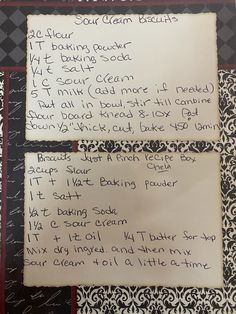 Sour Cream Biscuits
2C flour
1T baking powder
1/4 t baking soda
1/4 t salt
1 C sour cream
5 T milk (add more if needed)
Put all in bowl, stir till combine
flour board knead 8-10x Pat
down 1/2" thick, cut, bake 450 12min
Biscuits Just A Pinch recipe Box
2cups flour
1T + 1 1/2 t Baking powder
1t salt
1/2 t baking soda
1 1/2 C sour cream
1T + 1t oil 1/4 T butter for top
Mix dry ingred. and then mix
sour cream + oil a little a time